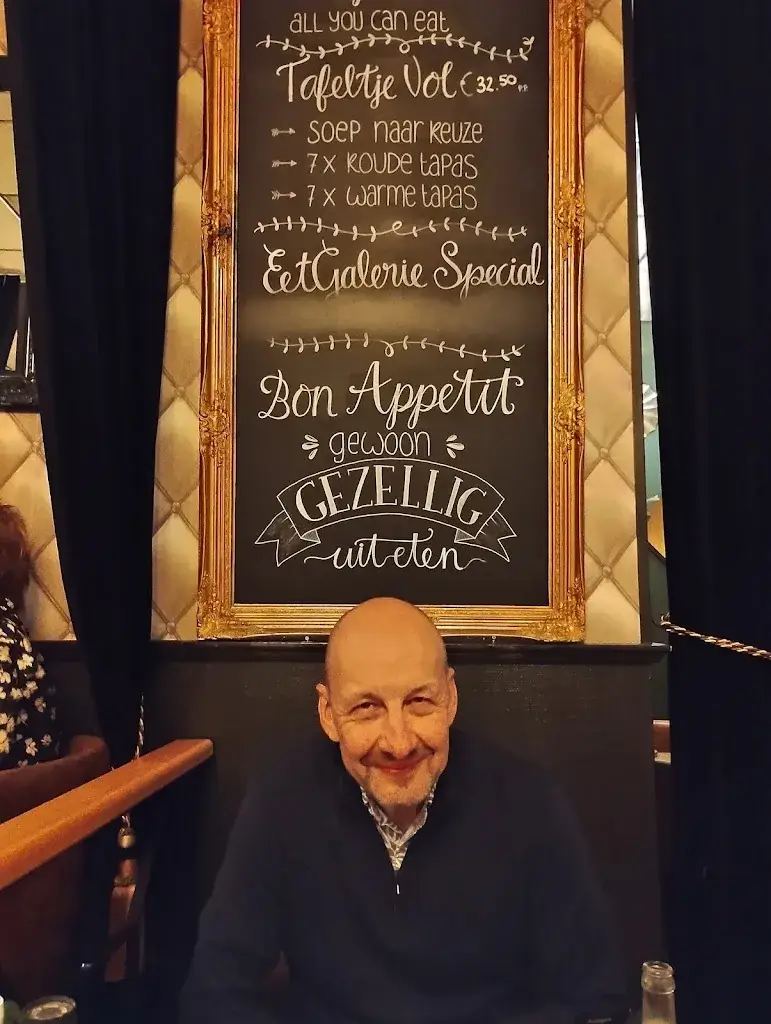 all you can eat
Tafeltje Vol € 32.50 pp
soep naar keuze
7x koude tapas
7x warme tapas
EetGalerie Special
Bon Appetit
gewoon
GEZELLIG
uit eten